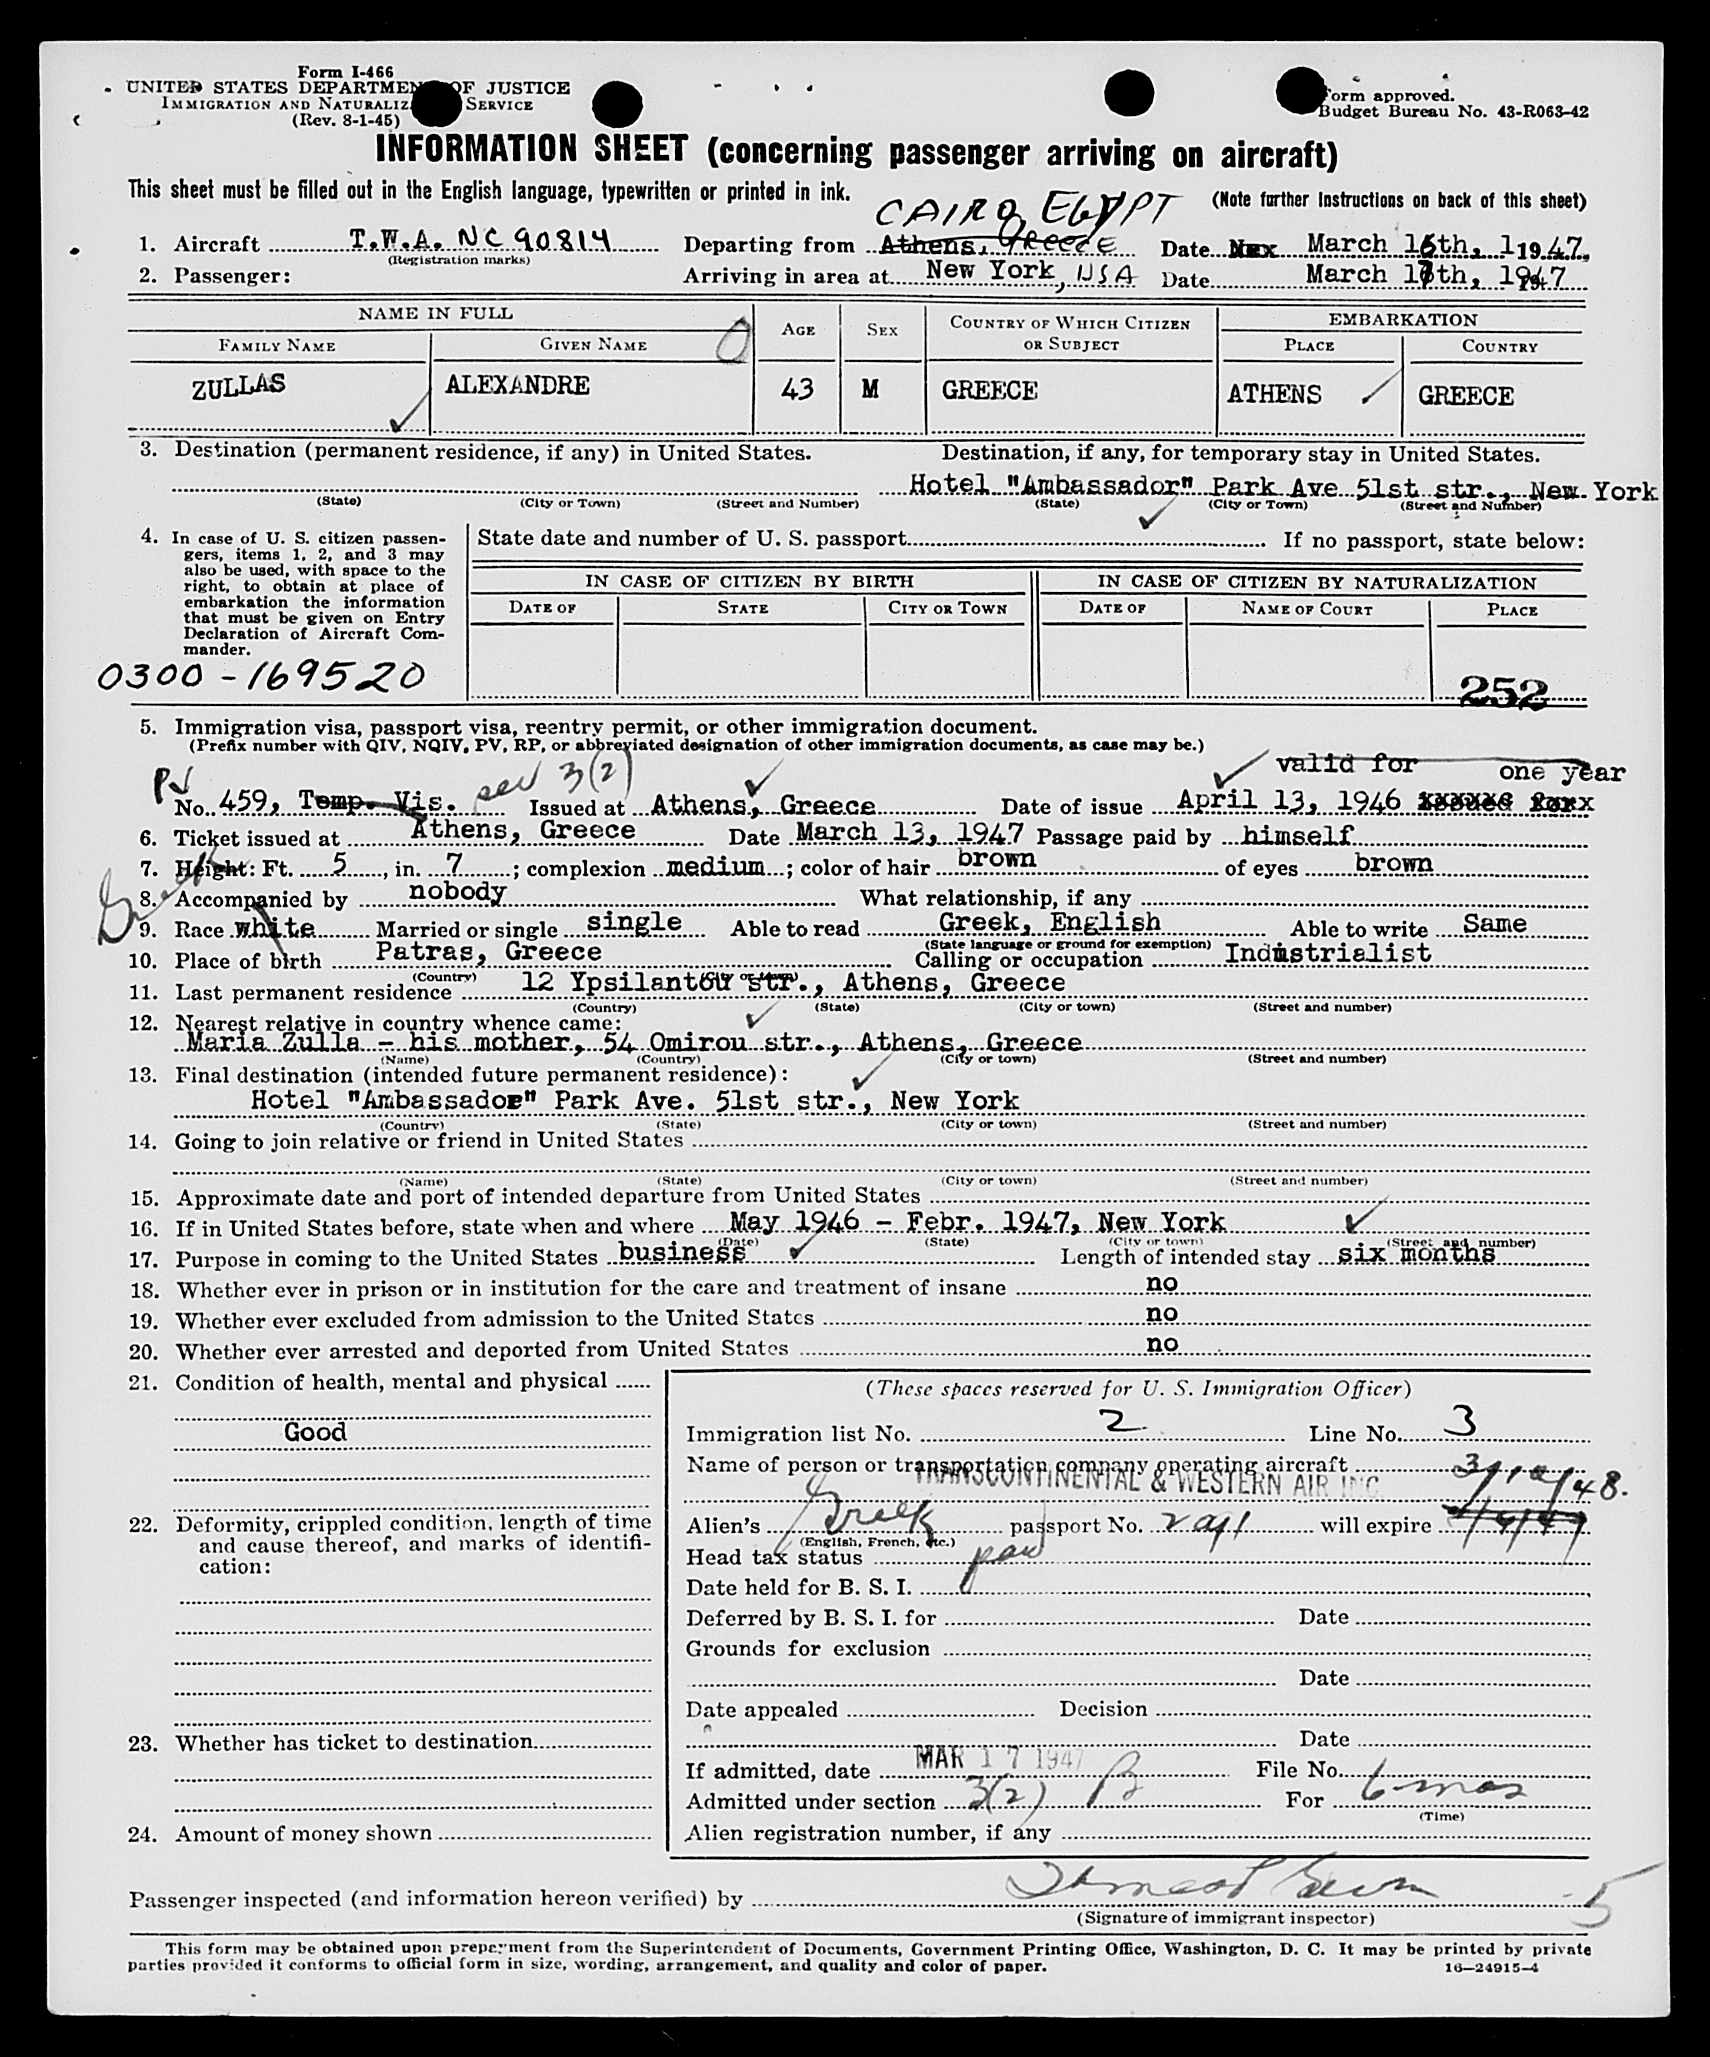 Form I-466
UNITED STATES DEPARTMENT OF JUSTICE
IMMIGRATION AND NATURALIZ SERVICE
(Rev. 8-1-45)
Form approved.
Budget Bureau No. 43-R063-42
INFORMATION SHEET (concerning passenger arriving on aircraft)
This sheet must be filled out in the English language, typewritten or printed in ink.
(Note further instructions on back of this sheet)
CAIRO, EGYPT
1. Aircraft T.W.A. NC 90814 Departing from Athens, Greece Date March 16th, 1947.
(Registration marks)
2. Passenger: Arriving in area at New York, USA Date March 17th, 1947
NAME IN FULL AGE SEX COUNTRY OF WHICH CITIZEN OR SUBJECT EMBARKATION
FAMILY NAME GIVEN NAME PLACE COUNTRY
ZULLAS ALEXANDRE 43 M GREECE ATHENS GREECE
3. Destination (permanent residence, if any) in United States. Destination, if any, for temporary stay in United States.
Hotel "Ambassador" Park Ave 51st str., New York
(State) (City or Town) (Street and Number) (State) (City or Town) (Street and Number)
4. In case of U. S. citizen passen-
gers, items 1, 2, and 3 may
also be used, with space to the
right, to obtain at place of
embarkation the information
that must be given on Entry
Declaration of Aircraft Com-
mander.
State date and number of U. S. passport If no passport, state below:
IN CASE OF CITIZEN BY BIRTH IN CASE OF CITIZEN BY NATURALIZATION
DATE OF STATE CITY OR TOWN DATE OF NAME OF COURT PLACE
0300-169520
252
5. Immigration visa, passport visa, reentry permit, or other immigration document.
(Prefix number with QIV, NQIV, PV, RP, or abbreviated designation of other immigration documents, as case may be.)
valid for one year
PV
No. 459, Temp. Vis. 3(2) Issued at Athens, Greece Date of issue April 13, 1946
6. Ticket issued at Athens, Greece Date March 13, 1947 Passage paid by himself
7. Height: Ft. 5, in. 7; complexion medium; color of hair brown of eyes brown
8. Accompanied by nobody What relationship, if any
Greek
9. Race white Married or single single Able to read Greek, English Able to write Same
(State language or ground for exemption)
10. Place of birth Patras, Greece Calling or occupation Industrialist
(Country) (City or town)
11. Last permanent residence 12 Ypsilantou str., Athens, Greece
(Country) (State) (City or town) (Street and number)
12. Nearest relative in country whence came:
Maria Zulla - his mother, 54 Omirou str., Athens, Greece
(Name) (Country) (City or town) (Street and number)
13. Final destination (intended future permanent residence):
Hotel "Ambassador" Park Ave. 51st str., New York
(Country) (State) (City or town) (Street and number)
14. Going to join relative or friend in United States
(Name) (State) (City or town) (Street and number)
15. Approximate date and port of intended departure from United States
16. If in United States before, state when and where May 1946 - Febr. 1947, New York
(Date) (State) (City or town) (Street and number)
17. Purpose in coming to the United States business Length of intended stay six months
18. Whether ever in prison or in institution for the care and treatment of insane no
19. Whether ever excluded from admission to the United States no
20. Whether ever arrested and deported from United States no
21. Condition of health, mental and physical
Good
22. Deformity, crippled condition, length of time
and cause thereof, and marks of identifi-
cation:
23. Whether has ticket to destination
24. Amount of money shown
(These spaces reserved for U. S. Immigration Officer)
Immigration list No. 2 Line No. 3
Name of person or transportation company operating aircraft
TRANSCONTINENTAL & WESTERN AIR INC.
3/10/48.
Alien's Greek passport No. will expire
(English, French, etc.)
Head tax status
Date held for B. S. I.
Deferred by B. S. I. for Date
Grounds for exclusion
Date
Date appealed Decision
Date
If admitted, date MAR 17 1947 File No.
Admitted under section 3(2) B For 6 mos
(Time)
Alien registration number, if any
Passenger inspected (and information hereon verified) by
(Signature of immigrant inspector)
This form may be obtained upon prepayment from the Superintendent of Documents, Government Printing Office, Washington, D. C. It may be printed by private
parties provided it conforms to official form in size, wording, arrangement, and quality and color of paper.
16—24915-4